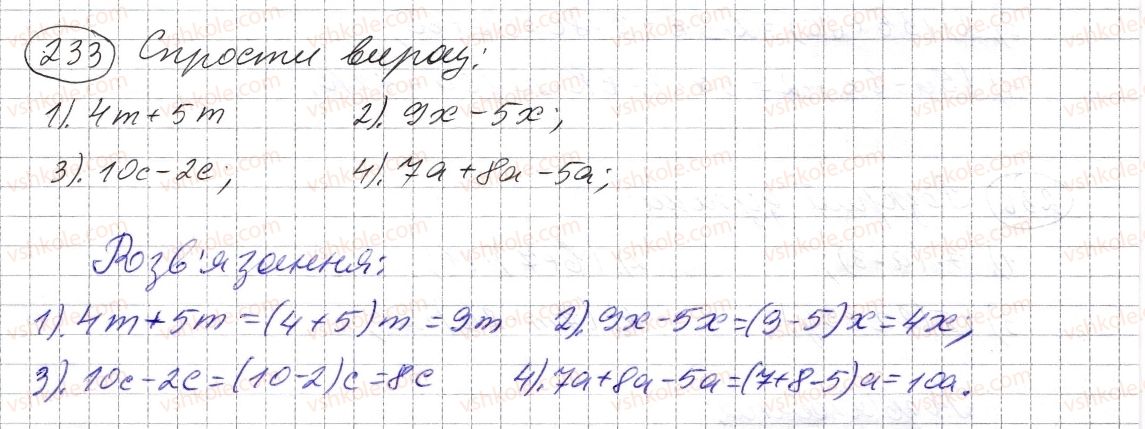 233 Спрости вираз:
1). 4m+5m 2). 9x-5x;
3). 10c-2c; 4). 7a+8a-5a;
Розв'язання:
1). 4m+5m=(4+5)m=9m 2). 9x-5x=(9-5)x=4x;
3). 10c-2c=(10-2)c=8c 4). 7a+8a-5a=(7+8-5)a=10a.
vshkole.com